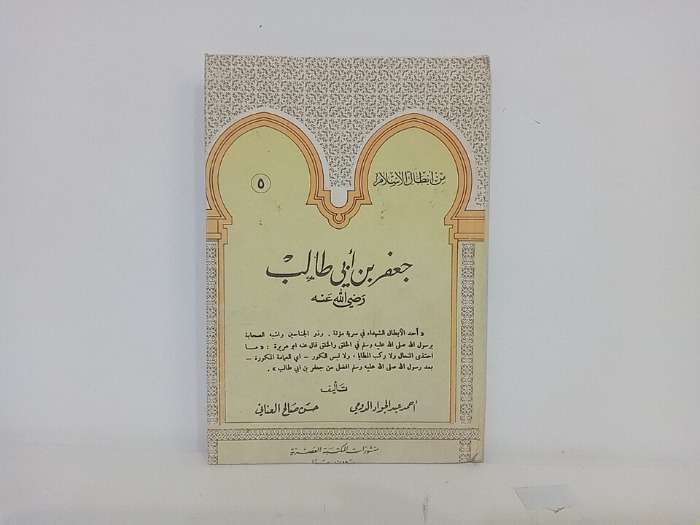 من أبطال الإسلام
٥
جعفر بن أبي طالب
رضي الله عنه
« أحد الأبطال الشهداء في سرية مؤتة . وذو الجناحين واشبه الصحابة
برسول الله صلى الله عليه وسلم في الخلق والخلق قال عنه ابو هريرة : « ما
احتذى النعال ولا ركب المطايا ، ولا لبس الكور - أي العمامة المكورة -
بعد رسول الله صلى الله عليه وسلم افضل من جعفر بن ابي طالب » .
تأليف
أحمد عبد الجواد الدومي
حسن صالح العناني
منشورات المكتبة العصرية